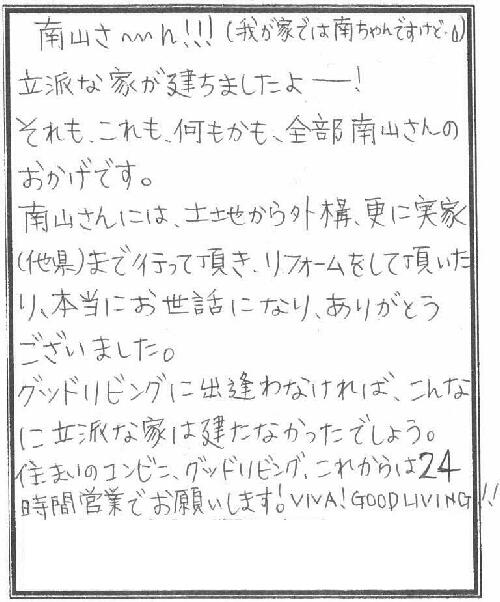 南山さ〜〜ん!!!(我が家では南ちゃんですけど・・)
立派な家が建ちましたよ──!
それも、これも、何もかも、全部南山さんの
おかげです。
南山さんには、土地から外構、更に実家
(他県)まで行って頂き、リフォームをして頂いた
り、本当にお世話になり、ありがとう
ございました。
グッドリビングに出逢わなければ、こんな
に立派な家は建たなかったでしょう。
住まいのコンビニ、グッドリビング、これからは24
時間営業でお願いします!VIVA!GOODLIVING!!